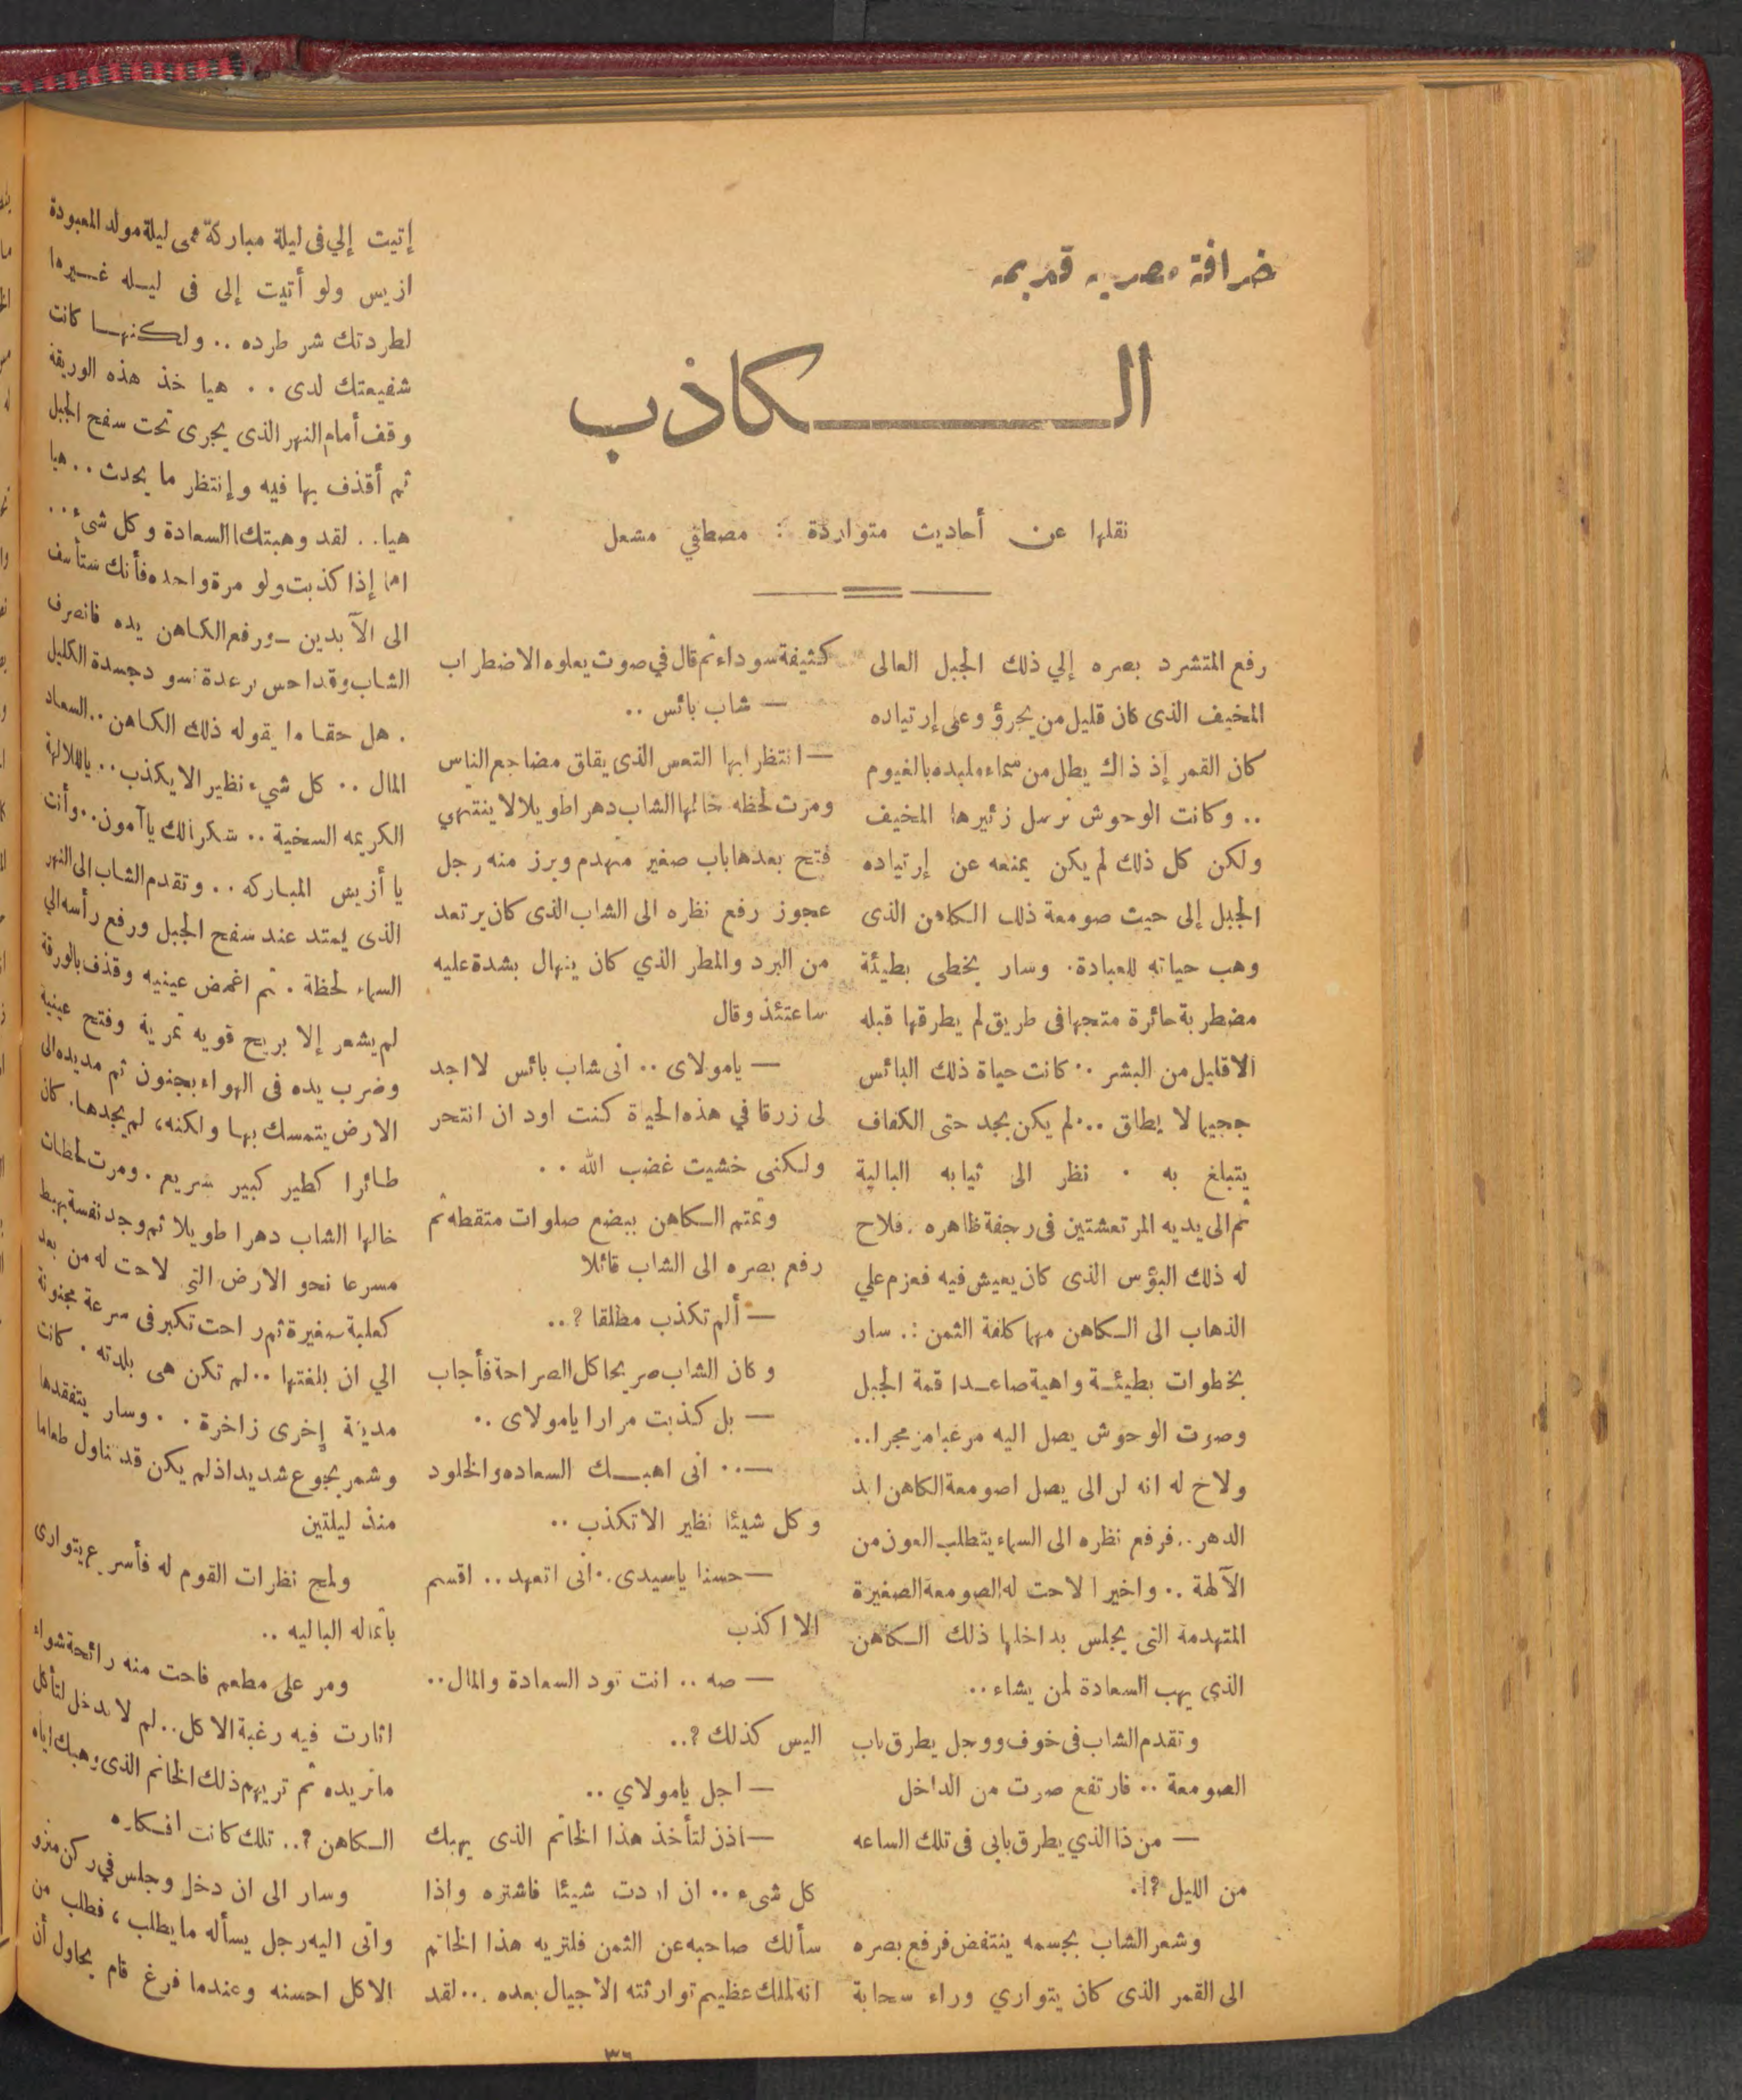 خرافة مصرية قديمة
الكاذب
نقلها عن أحاديث متواردة : مصطفي مشعل
رفع المتشرد بصره إلي ذلك الجبل العالى
المخيف الذى كان قليل من يجرؤ وعلى إرتياده
كان القمر إذ ذاك يطل من سماء ملبده بالغيوم
.. وكانت الوحوش ترسل زئيرها المخيف
ولكن كل ذلك لم يكن يمنعه عن إرتياده
الجبل إلى حيث صومعة ذلك الكاهن الذى
وهب حياته للعبادة . وسار بخطى بطيئة
مضطربة حائرة متجها فى طريق لم يطرقها قبله
الا قليل من البشر .. كانت حياة ذلك البائس
جحيما لا يطاق .. لم يكن يجد حتى الكفاف
يتبلغ به . نظر الى ثيابه البالية
ثم الى يديه المرتعشتين فى رجفة ظاهره . فلاح
له ذلك البؤس الذى كان يعيش فيه فعزم علي
الذهاب الى الكاهن مهما كلفة الثمن .. سار
بخطوات بطيئة واهية صاعدا قمة الجبل
وصوت الوحوش يصل اليه مرعبا مزمجرا..
ولاح له انه لن الى يصل اصومعة الكاهن ابد
الدهر .. فرفع نظره الى السماء يتطلب العون من
الآلهة .. واخيرا لاحت له الصومعة الصغيرة
المتهدمة التى يجلس بداخلها ذلك الكاهن
الذي يهب السعادة لمن يشاء ..
وتقدم الشاب فى خوف ووجل يطرق باب
الصومعة .. فارتفع صوت من الداخل
— من ذا الذي يطرق بابى فى تلك الساعه
من الليل ؟!.
وشعر الشاب بجسمه ينتفض فرفع بصره
الى القمر الذى كان يتوارى وراء سحابة
كثيفة سوداء ثم قال في صوت يعلوه الاضطراب
— شاب بائس ..
— انتظر ايها التعس الذى يقلق مضاجع الناس
ومرت لحظه خالها الشاب دهرا طويلا لا ينتهي
فتح بعدها باب صغير متهدم وبرز منه رجل
عجوز رفع نظره الى الشاب الذى كان يرتعد
من البرد والمطر الذي كان ينهال بشدة عليه
ساعتئذ وقال
— يامولاى .. انى شاب بائس لا اجد
لى زرقا في هذه الحياة كنت اود ان انتحر
ولكنى خشيت غضب الله ..
وتمتم الكاهن ببضع صلوات متقطه ثم
رفع بصره الى الشاب قائلا
— ألم تكذب مطلقا ؟..
وكان الشاب صريحا كل الصراحة فأجاب
— بل كذبت مرارا يامولاى ..
— .. انى اهبك السعاده والخلود
وكل شيئا نظير الا تكذب ..
— حسنا ياسيدى .. انى اتعهد .. اقسم
الا اكذب
— صه .. انت تود السعادة والمال ..
اليس كذلك ؟..
— اجل يامولاي ..
— اذن لتأخذ هذا الخاتم الذى يهبك
كل شىء .. ان اردت شيئا فاشتره واذا
سألك صاحبه عن الثمن فلتريه هذا الخاتم
انه لملك عظيم توارثته الأجيال بعده ... لقد
إتيت إلي فى ليلة مباركة هى ليلة مولد المعبودة
ازيس ولو أتيت إلى فى ليله غيرها
لطردتك شر طرده .. ولكنها كانت
شفيعتك لدى .. هيا خذ هذه الوريقة
وقف أمام النهر الذى يجرى تحت سفح الجبل
ثم أقذف بها فيه وإنتظر ما يحدث .. هيا
هيا .. لقد وهبتك السعادة وكل شىء ..
اما إذا كذبت ولو مرة واحده فأنك ستأسف
الى الآبدين — ورفع الكاهن يده فانصرف
الشاب وقد احس برعدة تسود جسدة الكليل
. هل حقا ما يقوله ذلك الكاهن .. السعاد
المال .. كل شيء نظير الا يكذب .. ياللالهة
الكريمه السخية .. شكرا لك يا آمون .. وأنت
يا أزيس المباركه .. وتقدم الشاب الى النهر
الذى يمتد عند سفح الجبل ورفع رأسه الي
السماء لحظة . ثم اغمض عينيه وقذف بالورقة
لم يشعر إلا بريح قويه تمر به وفتح عينية
وضرب يده فى الهواء بجنون ثم مد يده الى
الارض يتمسك بها ولكنه ، لم يجدها . كان
طائرا كطير كبير سريع . ومرت لحظات
خالها الشاب دهرا طويلا ثم وجد نفسة يهبط
مسرعا نحو الارض التى لاحت له من بعد
كعلبة صغيرة ثم راحت تكبر فى سرعة مجنونة
الي ان بلغتها .. لم تكن هى بلدته . كانت
مدينة إخرى زاخرة . . وسار يتفقدها
وشعر بجوع شديد اذ لم يكن قد تناول طعاما
منذ ليلتين
ولمح نظرات القوم له فأسرع يتوارى
بأتماله الباليه ..
ومر على مطعم فاحت منه رائحة شواء
اثارت فيه رغبة الاكل .. لم لا يدخل لتأكل
ماتريده ثم تريهم ذلك الخاتم الذى وهبك اياه
الكاهن ؟ .. تلك كانت افكاره
وسار الى ان دخل وجلس في ركن منزو
واتى اليه رجل يسأله ما يطلب ، فطلب من
الاكل احسنه وعندما فرغ قام يحاول أن
٣٦